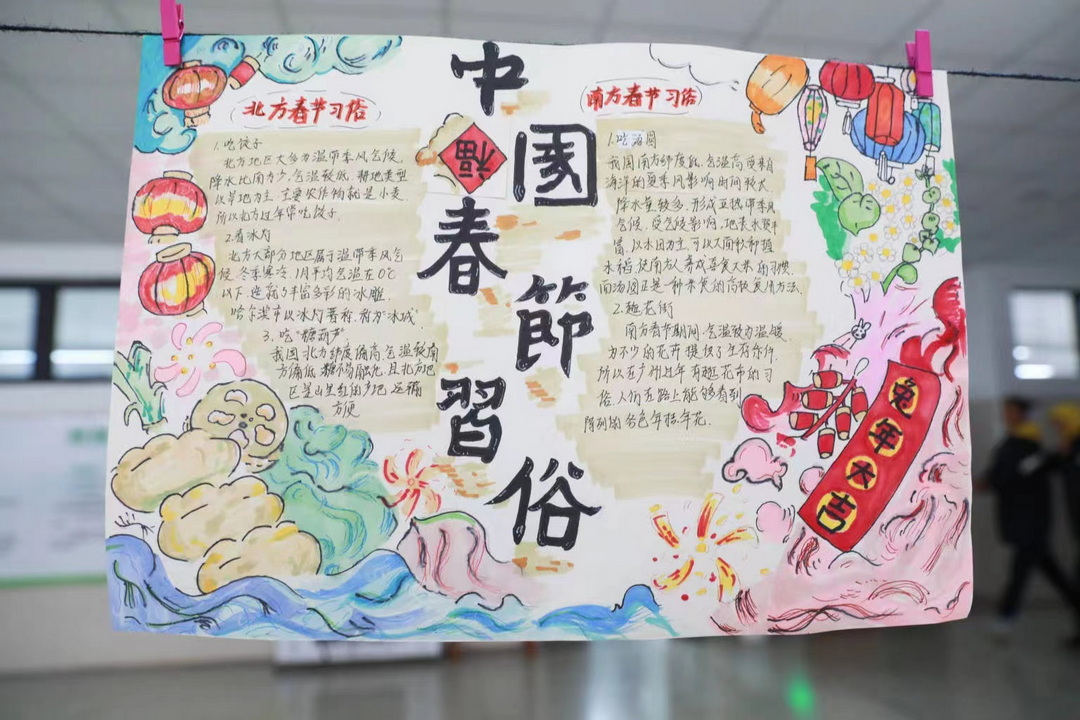 中國春節習俗
福
北方春节习俗
1.吃饺子
北方地区大多为温带季风气候,
降水比南方少,气温较低,耕地类型
以旱地为主,主要农作物就是小麦,
所以北方过年常吃饺子.
2.看冰灯
北方大部分地区属于温带季风气
候,冬季寒冷,1月平均气温在0℃
以下,造就了丰富多彩的冰雕.
哈尔滨市以冰灯著称,称为"冰城".
3.吃"糖葫芦"
我国北方纬度偏高,气温较南
方偏低,糖物质
区是山里红的产地,运输
方便
南方春节习俗
1.吃汤圆
我国南方纬度低,气温高,受来自
海洋的夏季风影响时间较长,
降水量较多,形成亚热带季风
气候.受气候影响,地表水资丰
富,以水田为主,可以大面积种植
水稻,使南方人养成喜食大米的习惯.
而汤圆正是一种米食的高级食用方法.
2.逛花街
南方春节期间,气温较为温暖,
为不少的花卉提供了生存条件,
所以在广州过年有逛花市的习
俗,人们在路上能够看到
陈列的各色年桔年花.
兔年大吉